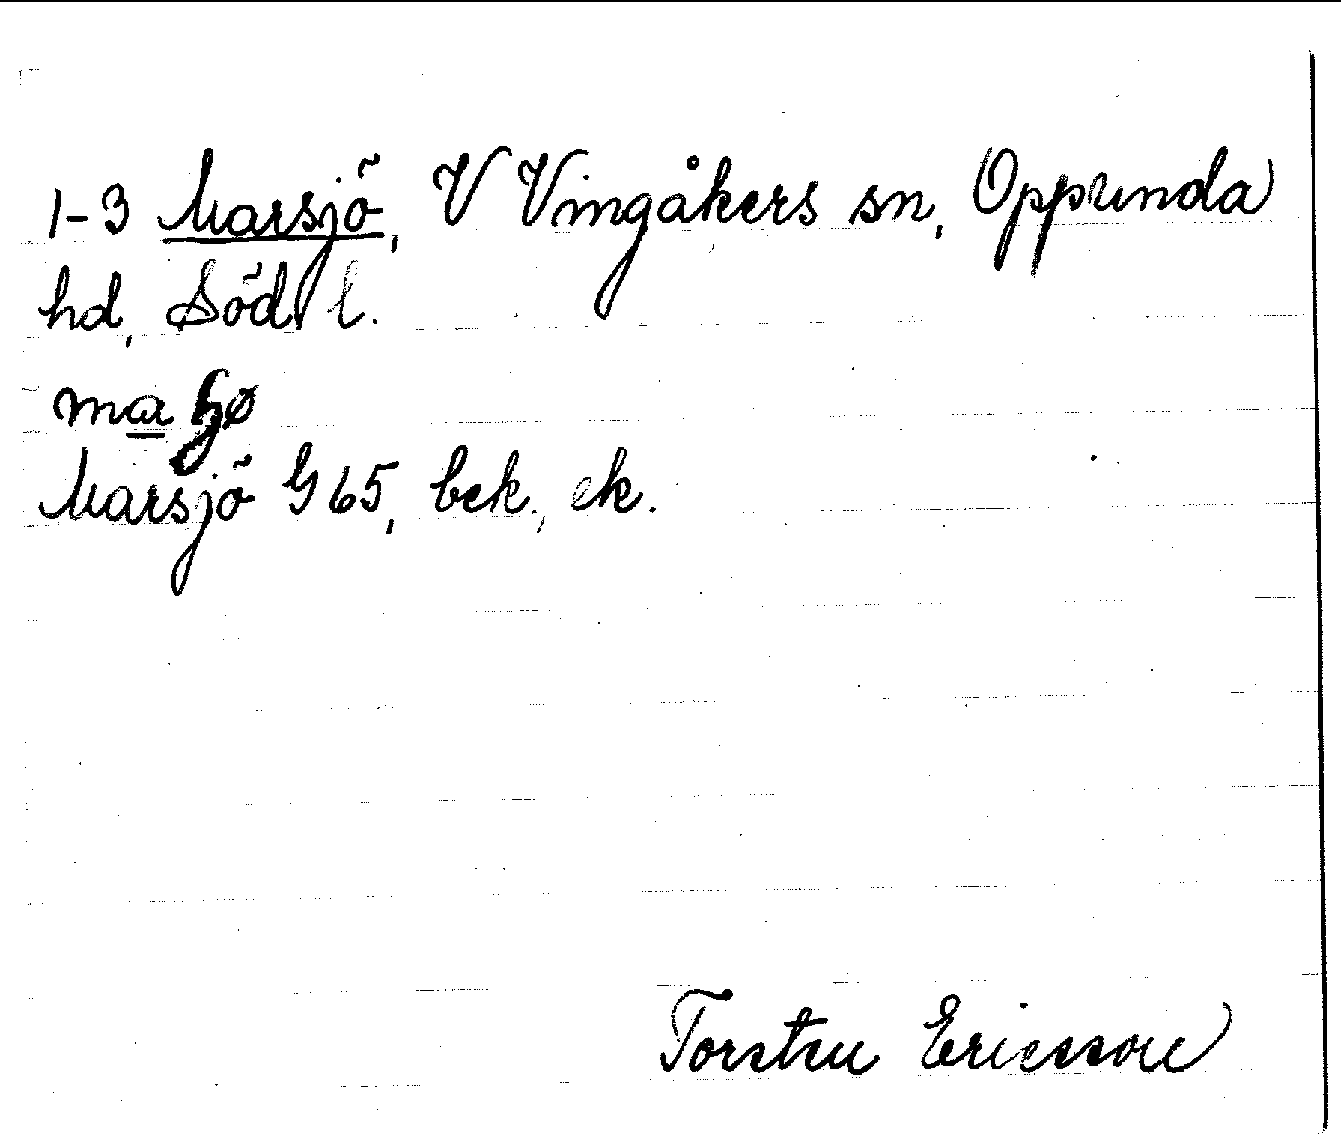 1-3 Marsjö, V Vingåkers sn, Oppunda
hd, Söd l.
Marsjö G 65, bek., ek.
Torsten Ericsson